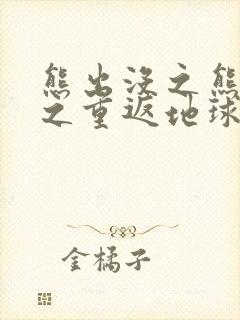 熊出没之熊
之重返地球
金橘子